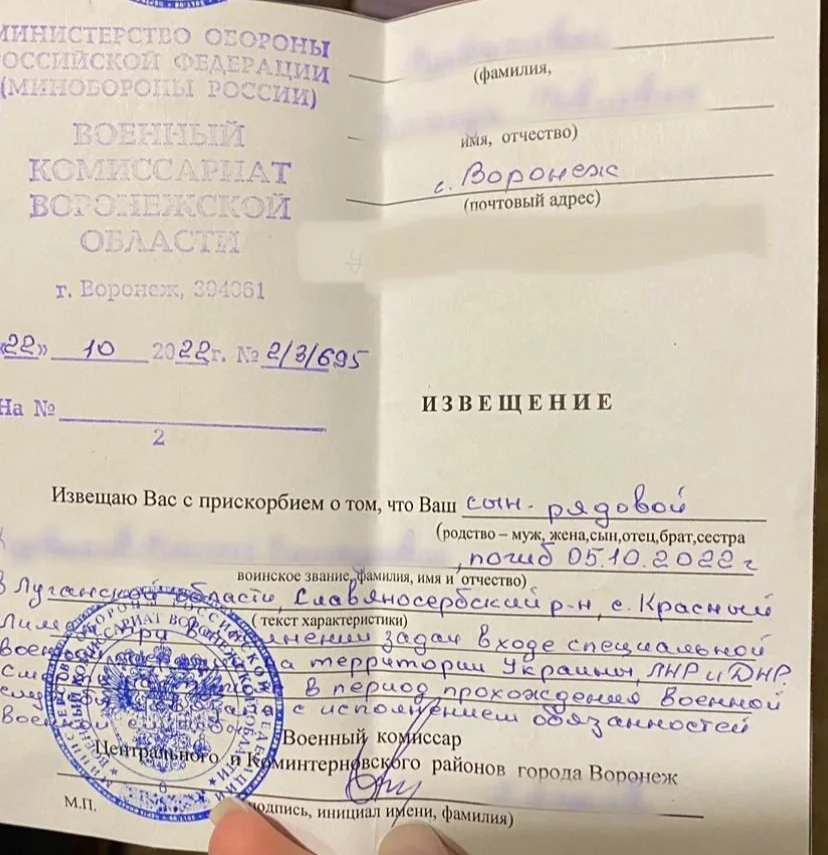 МИНИСТЕРСТВО ОБОРОНЫ
РОССИЙСКОЙ ФЕДЕРАЦИИ
(МИНОБОРОНЫ РОССИИ)
ВОЕННЫЙ
КОМИССАРИАТ
ВОРОНЕЖСКОЙ
ОБЛАСТИ
г. Воронеж, 394061
«22» 10 2022г. № 2/3/695
На №
2
(фамилия,
имя, отчество)
г. Воронеж
(почтовый адрес)
ИЗВЕЩЕНИЕ
Извещаю Вас с прискорбием о том, что Ваш сын - рядовой
(родство – муж, жена,сын,отец,брат,сестра
, погиб 05.10.2022 г
воинское звание, фамилия, имя и отчество)
в Луганской области, Славяносербский р-н, с. Красный
( текст характеристики)
Лиман при задач входе специальной
на территории Украины, ЛНР и ДНР.
в период прохождения военной
с исполнением обязанностей
Военный комиссар
Центрального и Коминтерновского районов города Воронеж
М.П.
подпись, инициал имени, фамилия)